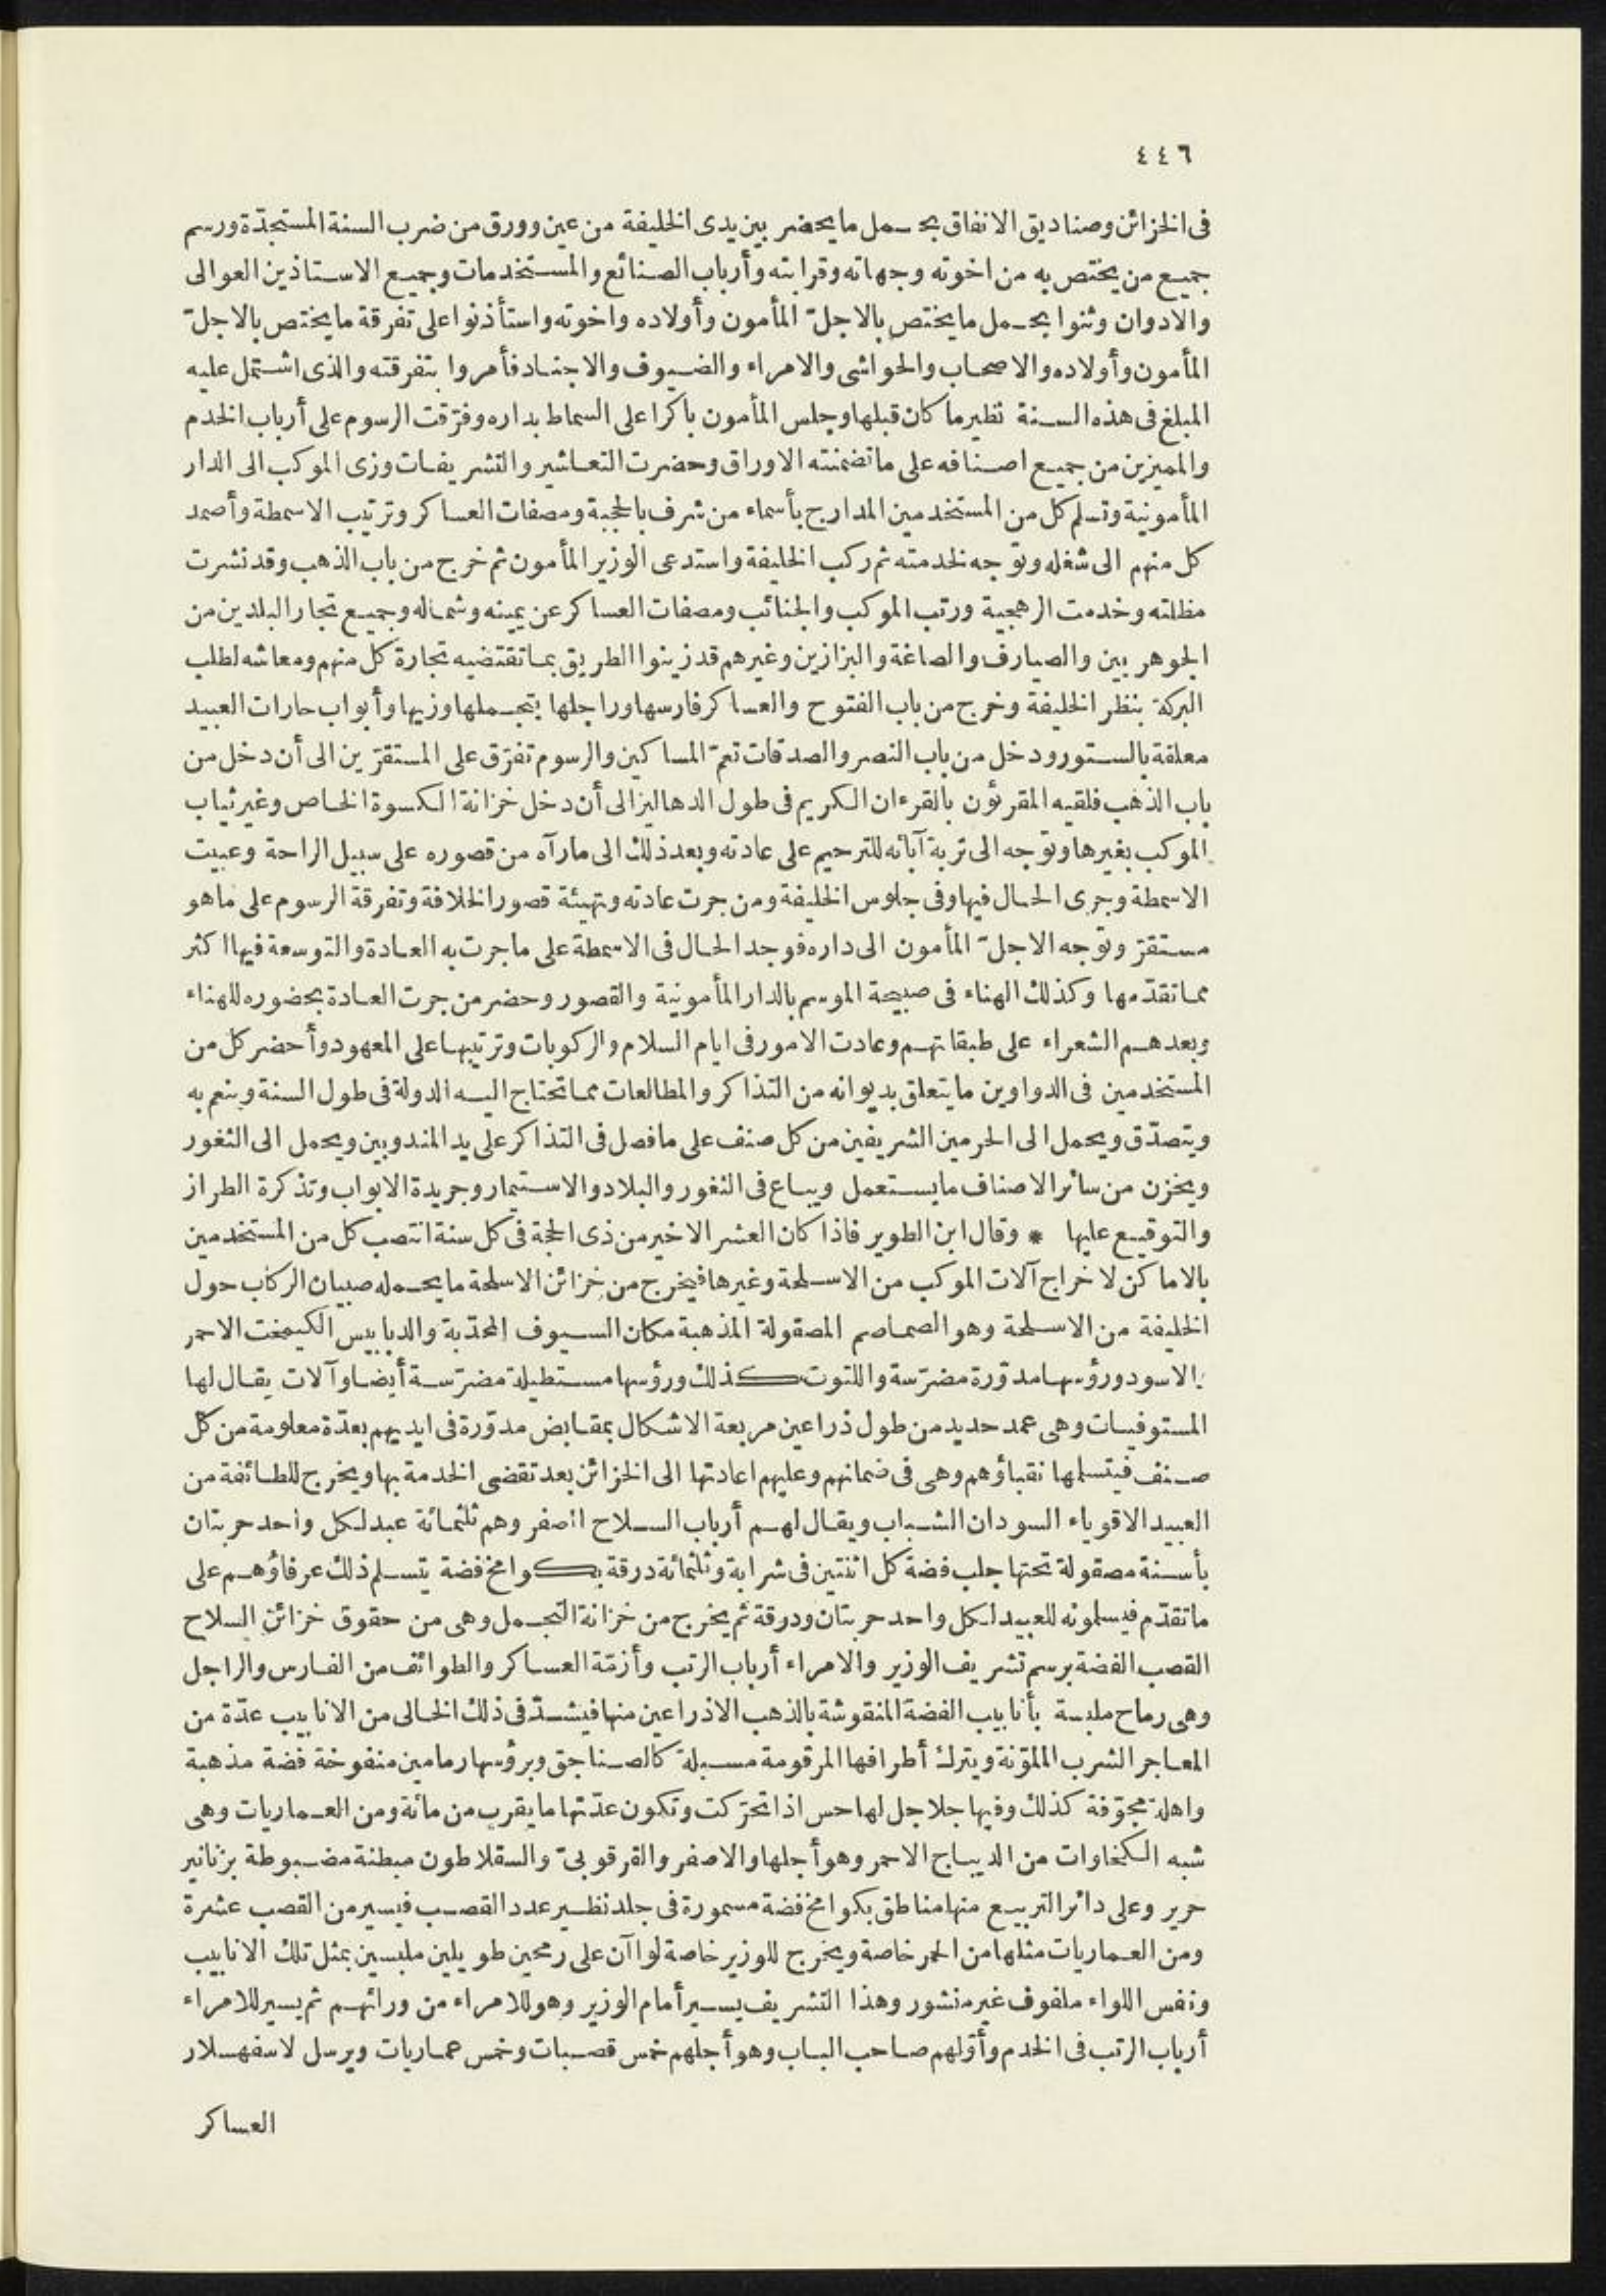 ٤٤٦
فى الخزائن وصناديق الانفاق بحمل ما يحضر بين يدى الخليفة من عين وورق من ضرب السنة المستجدّة ورسم
جميع من يختص به من اخوته وجهاته وقرابته وأرباب الصنائع والمستخدمات وجميع الاستاذين العوالى
والادوان وثنوا بحمل ما يختص بالاجلّ المأمون وأولاده واخوته واستأذنوا على تفرقة ما يختص بالاجلّ
المأمون وأولاده والاصحاب والحواشى والامراء والضيوف والاجناد فأمروا بتفرقته والذى اشتمل عليه
المبلغ فى هذه السنة نظير ما كان قبلها وجلس المأمون باكرا على السماط بداره وفرّقت الرسوم على أرباب الخدم
والمميزين من جميع اصنافه على ما تضمنته الاوراق وحضرت التعاشير والتشريفات وزى الموكب الى الدار
المأمونية وتسلم كل من المستخدمين المدارج بأسماء من شرف بالحجبة ومصفات العساكر وترتيب الاسمطة وأصمد
كل منهم الى شغله وتوّجه لخدمته ثم ركب الخليفة واستدعى الوزير المأمون ثم خرج من باب الذهب وقد نشرت
مظلته وخدمت الرهجية ورتب الموكب والجنائب ومصفات العساكر عن يمينه وشماله وجميع تجار البلدين من
الجوهريين والصيارف والصاغة والبزازين وغيرهم قد زينوا الطريق بما تقتضيه تجارة كل منهم ومعاشه لطلب
البركة بنظر الخليفة وخرج من باب الفتوح والعساكر فارسها وراجلها بتجملها وزيها وأبواب حارات العبيد
معلقة بالستور ودخل من باب النصر والصدقات تعمّ المساكين والرسوم تفرّق على المستقرّين الى أن دخل من
باب الذهب فلقيه المقرئون بالقرءان الكريم فى طول الدهاليز الى أن دخل خزانة الكسوة الخاص وغير ثياب
الموكب بغيرها وتوّجه الى تربة آبائه للترحيم على عادته وبعد ذلك الى ما رآه من قصوره على سبيل الراحة وعبيت
الاسمطة وجرى الحال فيها وفى جلوس الخليفة ومن جرت عادته وتهيئة قصور الخلافة وتفرقة الرسوم على ما هو
مستقرّ وتوّجه الاجلّ المأمون الى داره فوجد الحال فى الاسمطة على ما جرت به العادة والتوسعة فيها اكثر
مما تقدّمها وكذلك الهناء فى صبيحة الموسم بالدار المأمونية والقصور وحضر من جرت العادة بحضوره للهناء
وبعدهم الشعراء على طبقاتهم وعادت الامور فى ايام السلام والركوبات وترتيبها على المعهود وأحضر كل من
المستخدمين فى الدواوين ما يتعلق بديوانه من التذاكر والمطالعات مما تحتاج اليه الدولة فى طول السنة وينعم به
ويتصدّق ويحمل الى الحرمين الشريفين من كل صنف على ما فصل فى التذاكر على يد المندوبين ويحمل الى الثغور
ويخزن من سائر الاصناف ما يستعمل ويباع فى الثغور والبلاد والاستيمار وجريدة الابواب وتذكرة الطراز
والتوقيع عليها * وقال ابن الطوير فاذا كان العشر الاخير من ذى الحجة فى كل سنة انتصب كل من المستخدمين
بالاماكن لاخراج آلات الموكب من الاسلحة وغيرها فيخرج من خزائن الاسلحة ما يحمله صبيان الركاب حول
الخليفة من الاسلحة وهو الصماصم المصقولة المذهبة مكان السيوف المحدّبة والدبابيس الكيمخت الاحمر
والاسود ورؤسها مدوّرة مضرّسة واللتوت كذلك ورؤسها مستطيلة مضرّسة أيضا وآلات يقال لها
المستوفيات وهى عمد حديد من طول ذراعين مربعة الاشكال بمقابض مدوّرة فى ايديهم بعدّة معلومة من كل
صنف فيتسلمها نقباؤهم وهى فى ضمانهم وعليهم اعادتها الى الخزائن بعد تقضى الخدمة بها ويخرج للطائفة من
العبيد الاقوياء السودان الشباب ويقال لهم أرباب السلاح الصفر وهم ثلثمائة عبد لكل واحد حربتان
بأسنة مصقولة تحتها جلب فضة كل اثنتين فى شرابة وثلثمائة درقة بكوامخ فضة يتسلم ذلك عرفاؤهم على
ما تقدّم فيسلمونه للعبيد لكل واحد حربتان ودرقة ثم يخرج من خزانة التجمل وهى من حقوق خزائن السلاح
القصب الفضة برسم تشريف الوزير والامراء أرباب الرتب وأزمّة العساكر والطوائف من الفارس والراجل
وهى رماح ملبسة بأنابيب الفضة المنقوشة بالذهب الاذراعين منها فيشدّ فى ذلك الخالى من الانابيب عدّة من
المعاجر الشرب الملوّنة ويترك أطرافها المرقومة مسبلة كالصناجق وبرؤسها رمامين منفوخة فضة مذهبة
واهلة مجوّفة كذلك وفيها جلاجل لها حس اذا تحرّكت وتكون عدّتها ما يقرب من مائة ومن العماريات وهى
شبه الكنجاوات من الديباج الاحمر وهو أجلها والاصفر والقرقوبىّ والسقلاطون مبطنة مضبوطة بزنانير
حرير وعلى دائر التربيع منها مناطق بكوامخ فضة مسمورة فى جلد نظير عدد القصب فيسير من القصب عشرة
ومن العماريات مثلها من الحمر خاصة ويخرج للوزير خاصة لواآن على رمحين طويلين ملبسين بمثل تلك الانابيب
ونفس اللواء ملفوف غير منشور وهذا التشريف يسير أمام الوزير وهو للامراء من ورائهم ثم يسير للامراء
أرباب الرتب فى الخدم وأوّلهم صاحب الباب وهو أجلهم خمس قصبات وخمس عماريات ويرسل لاسفهسلار
العساكر